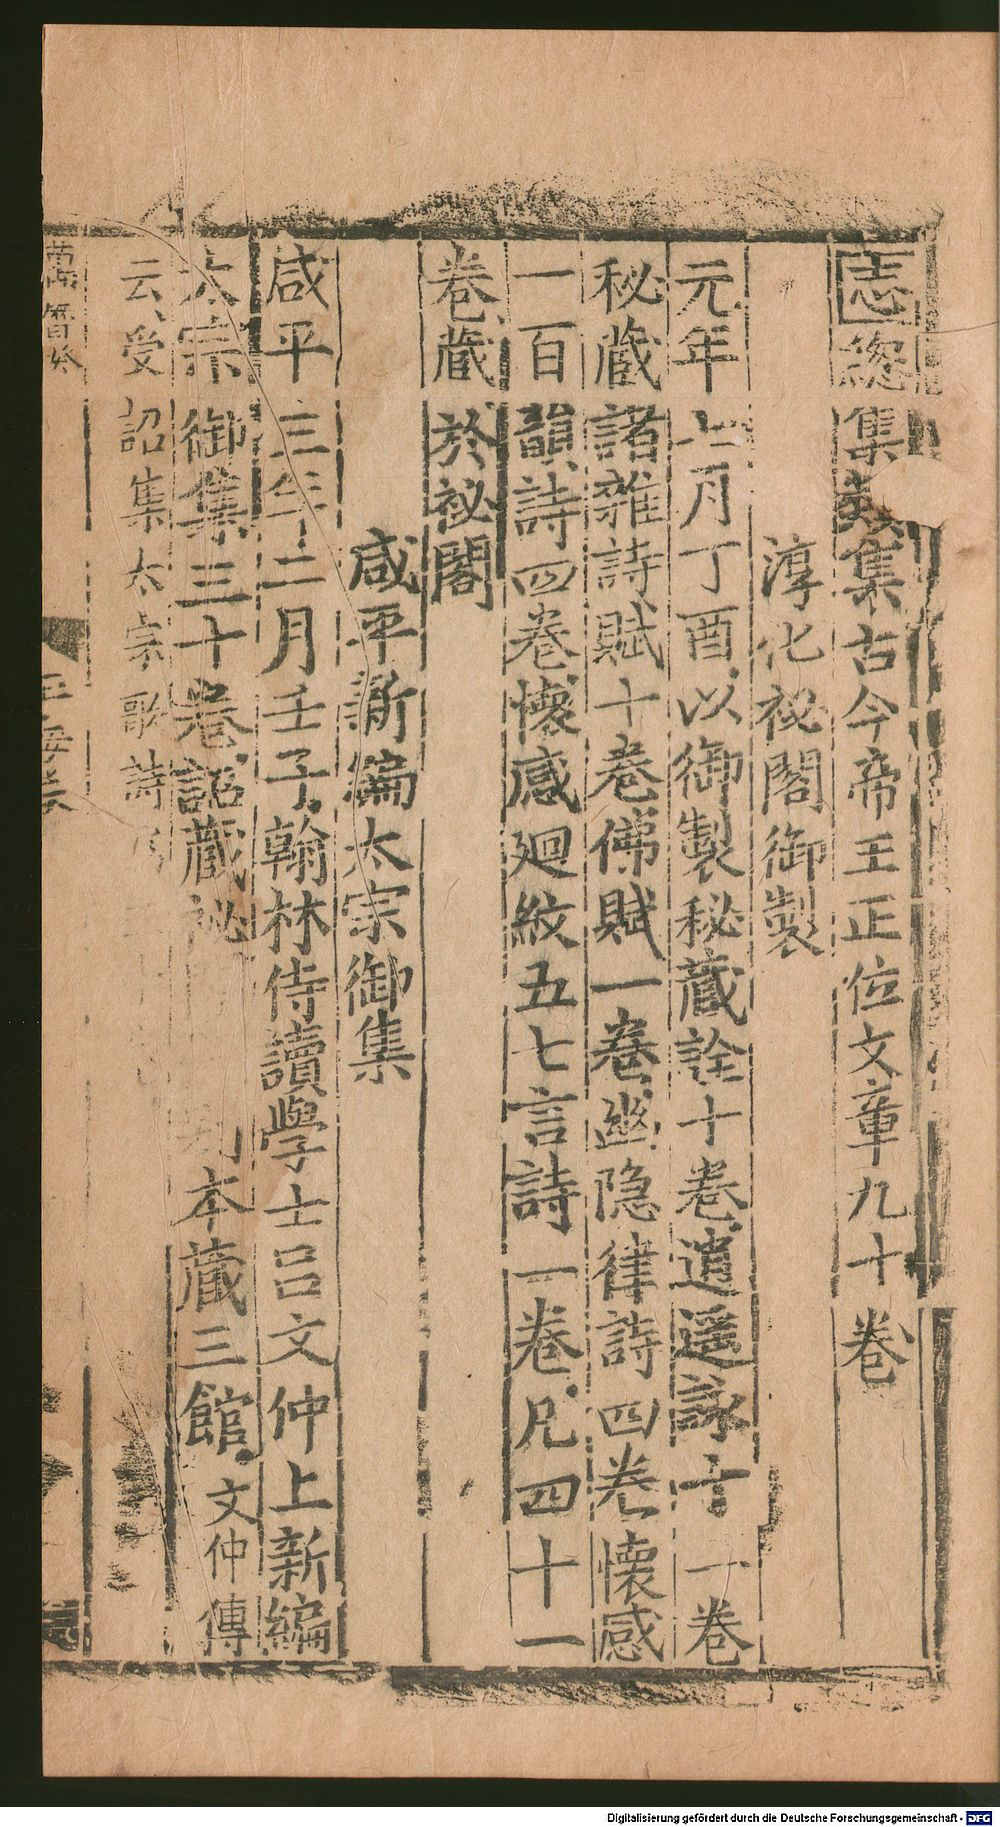 志總集類集古今帝王正位文章九十卷
淳化祕閣御製
元年七月丁酉以御製秘藏詮十卷逍遥詠十一卷
秘藏諸雜詩賦十卷佛賦一卷幽隐律詩四卷懷感
一百韻詩四卷懷感廻紋五七言詩一卷凡四十一
卷藏於祕閣
咸平新編太宗御集
咸平三年二月壬子翰林侍讀學士吕文仲上新編
太宗御集三十卷詔藏祕 本藏三館文仲傳
云受詔集太宗歌詩
萬曆癸 玉海卷
Digitalisierung gefördert durch die Deutsche Forschungsgemeinschaft - DFG